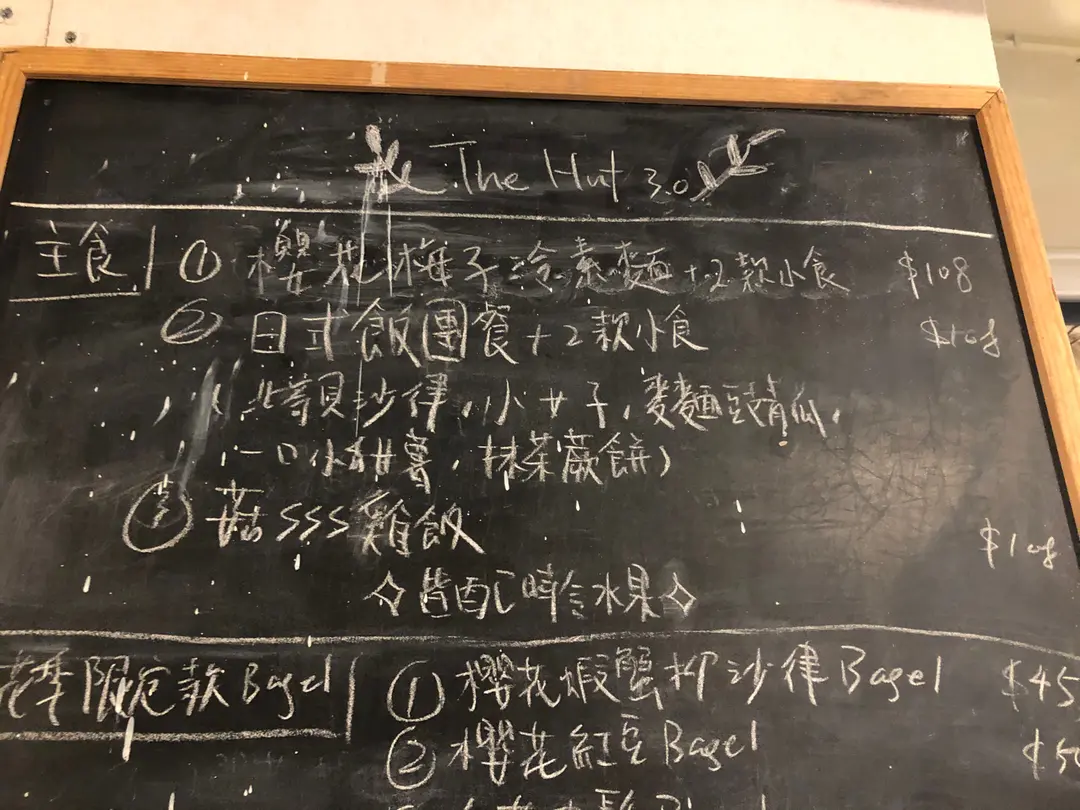 The Hut 3.0
主食 ① 櫻花梅子冷素麵+2款小食 $108
② 日式飯團餐+2款小食 $108
沙律,小女子,麵豉青瓜,
一口小甜薯,抹茶蕨餅)
菇SSS雞飯 $108
皆配時令水果
季限定款Bagel ① 櫻花蝦蟹柳沙律Bagel $45
② 櫻花紅豆Bagel